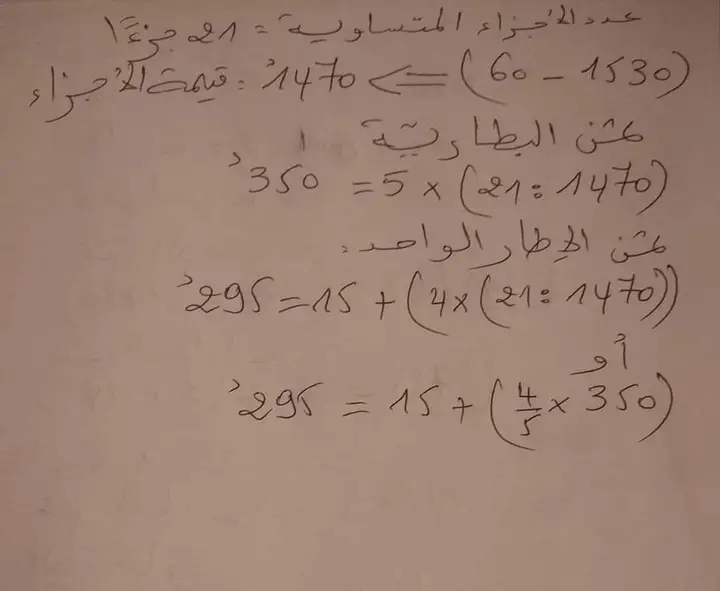 عدد الأجزاء المتساوية = 21 جزءًا
(60 - 1530) <= 1470د = قيمة الأجزاء
ثمن البطارية
(21 : 1470) × 5 = 350د
ثمن الإطار الواحد:
((21 : 1470) × 4) + 15 = 295د
أو
(350 × 4/5) + 15 = 295د